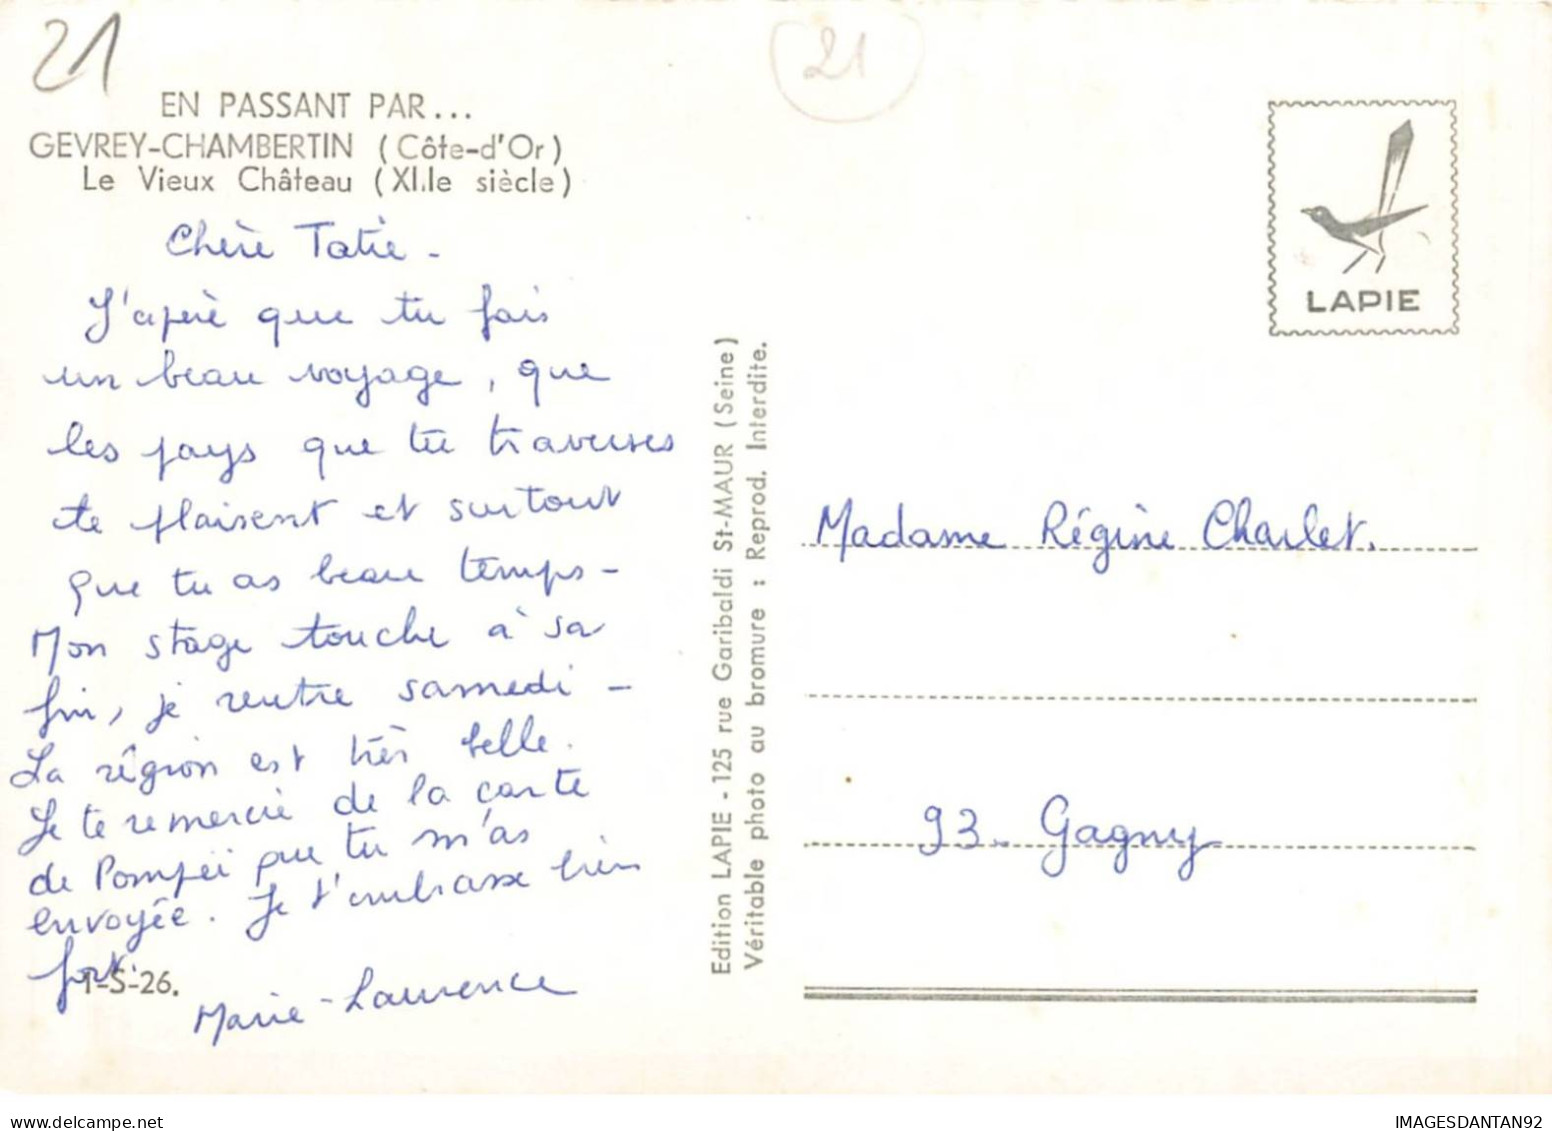 21
21
EN PASSANT PAR...
GEVREY-CHAMBERTIN (Côte-d'Or)
Le Vieux Château (XIIIe siècle)
Chère Tatie -
J'espère que tu fais
un beau voyage, que
les pays que tu traverses
te plaisent et surtout
que tu as beau temps -
Mon stage touche à sa
fin, je rentre samedi -
La région est très belle.
Je te remercie de la carte
de Pompéï que tu m'as
envoyée. Je t'embrasse bien
fort.
1-S-26.
Marie-Laurence
Edition LAPIE - 125 rue Garibaldi St-MAUR (Seine)
Véritable photo au bromure : Reprod. Interdite.
LAPIE
Madame Régine Charlet.
93. Gagny
IMAGESDANTAN92
delcampe.net